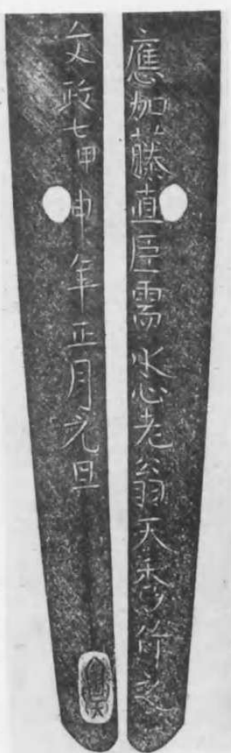 應加藤直臣需水心老翁天秀作之
文政七甲申年正月元旦